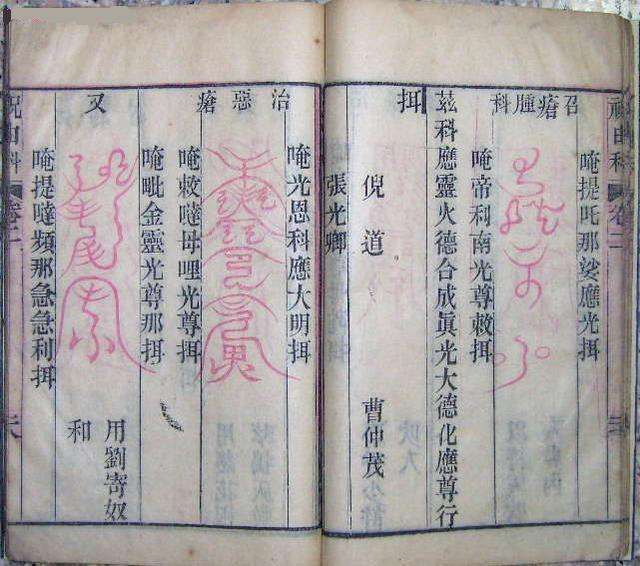 祝由科 卷二
唵提吒那娑應光挕
召瘡腫科
唵帝利南光尊敕挕
茲科應靈火德合成眞光大德化應尊行
挕
倪道 曹仲茂
張光卿
唵光恩科應大明挕
治惡瘡
唵敕噠母哩光尊挕
唵毗金靈光尊那挕
又
用劉寄奴
和
唵提噠頻那急急利挕
祝由科 卷二